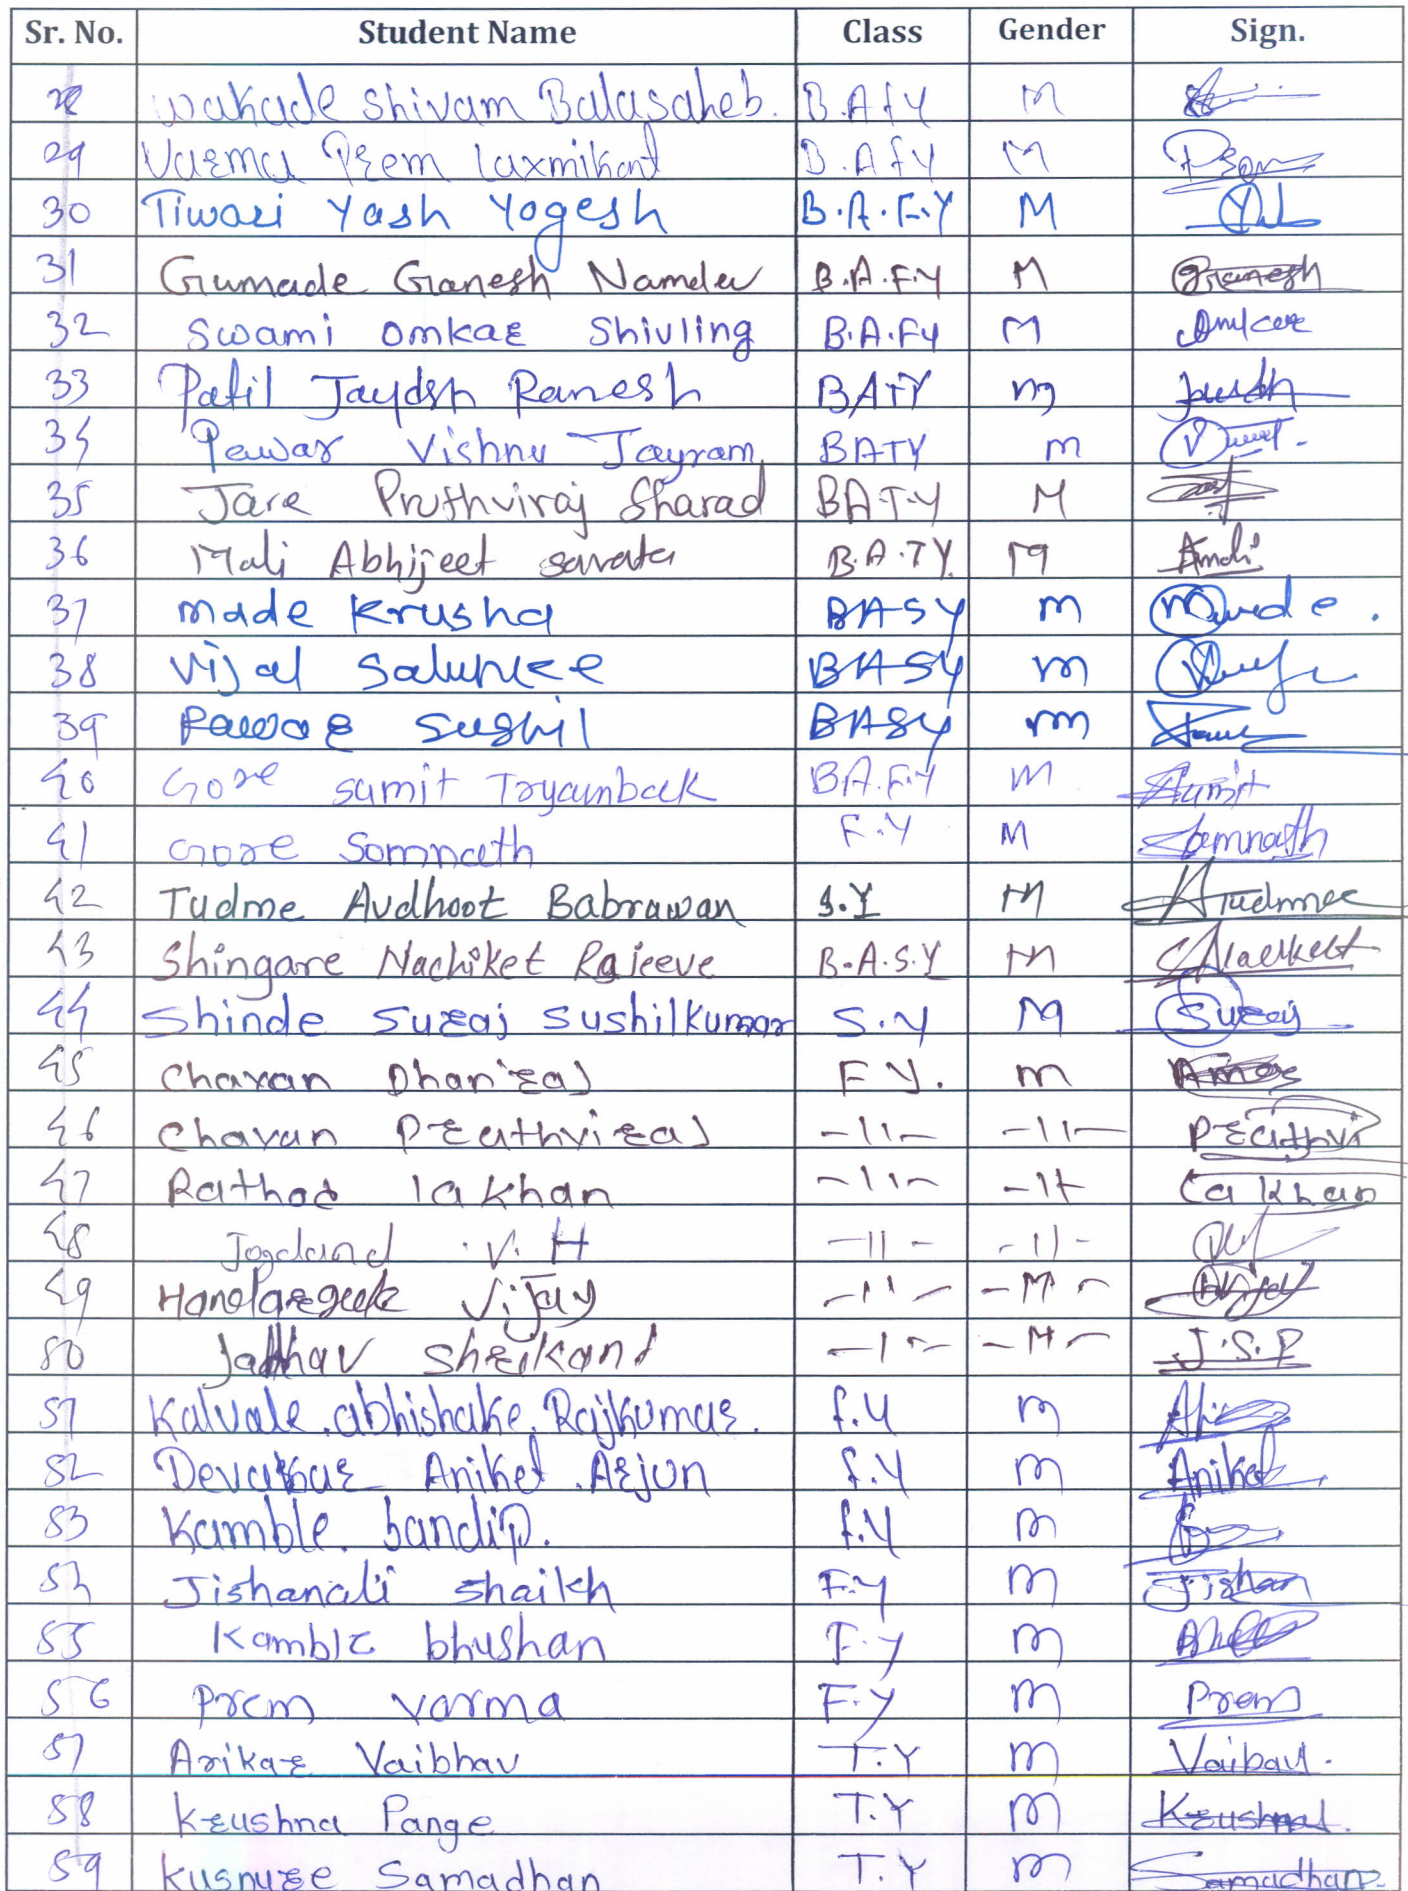 Sr. No. Student Name Class Gender Sign.
28 Wakade Shivam Balasaheb. B.A f Y M
29 Varma Prem Laxmikant B.A f Y M Prem
30 Tiwari Yash Yogesh B.A.F.Y M
31 Gumade Ganesh Namdev B.A.F.Y M Ganesh
32 Swami Omkar Shivling B.A.FY M Omkar
33 Patil Jaydsh Ramesh BATY M
34 Pawar Vishnu Jayram BATY M
35 Jare Pruthviraj Sharad BAT.Y M
36 Mali Abhijeet Savata B.A.TY. M
37 Made Krusha BASY M
38 Vijal Salunkee BASY M
39 Pawar Sushil BASY M
40 Gore Sumit Tryambak BA.F.Y M Sumit
41 Gore Somnath F.Y M Somnath
42 Tudme Avdhoot Babrawan S.Y M ATudmee
43 Shingare Nachiket Rajeeve B.A.S.Y M
44 Shinde Suraj Sushilkumar S.Y M Suraj
45 Chavan Dhanraj F Y. M
46 Chavan Pruthviraj -11- -11- Pruthvi
47 Rathod lakhan -11- -11- Lakhan
48 Jogdand V. H -11- -11-
49 Vijay -11- -M-
50 Jadhav Shrikant -11- -M- J.S.P
51 Kalvale. abhishake. Rajkumar. f.Y M
52 Devarkar Aniket. Arjun f.Y M Aniket
53 Kamble. Sandip. f.Y M
54 Jishanali Shaikh F.Y M Jishan
55 Kamble bhushan F.Y M
56 Prem varma F.Y M Prem
57 Arikar Vaibhav T.Y M Vaibav.
58 Krushna Pange T.Y M Krushna.
59 Kusnure Samadhan T.Y M Samadhan.